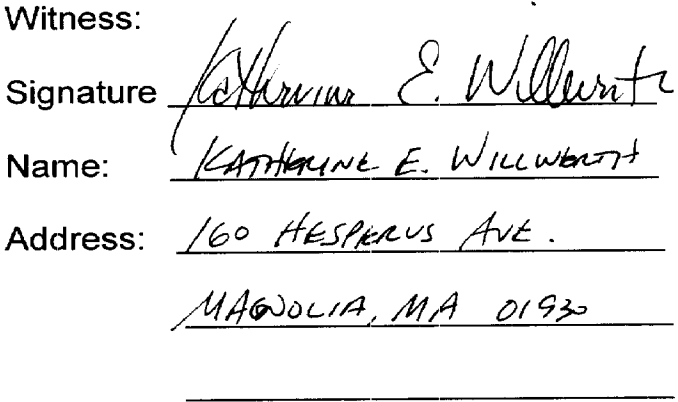 Witness:
Signature Katherine E. Willwerth
Name: KATHERINE E. WILLWERTH
Address: 160 HESPERUS AVE.
MAGNOLIA, MA 01930